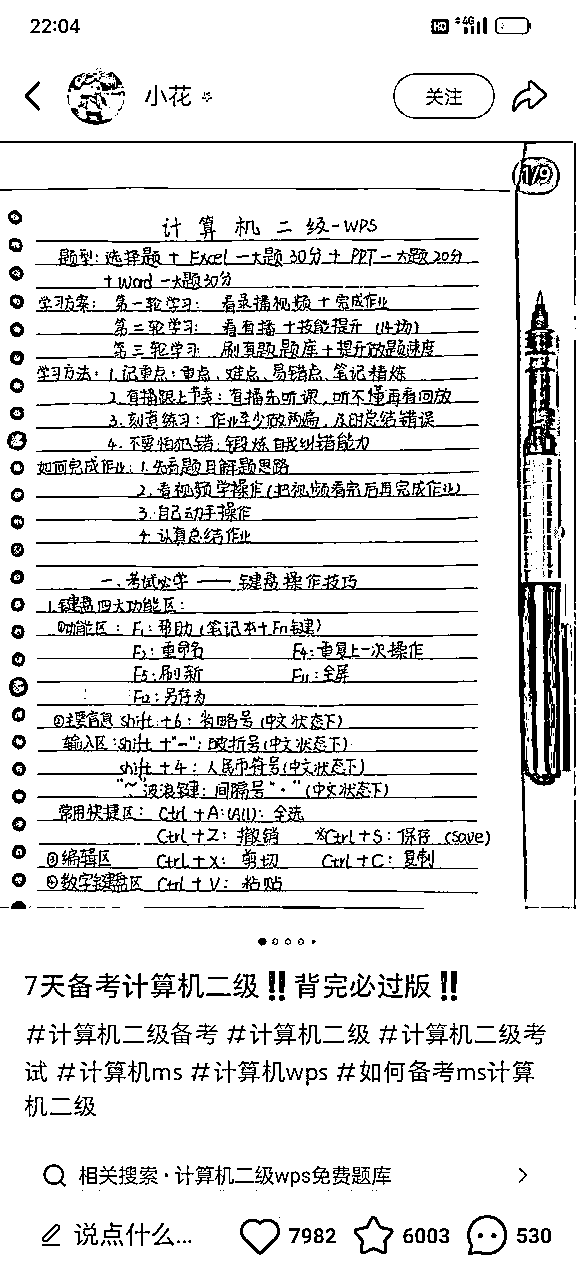 22:04
小花
关注
1/9
计算机二级-WPS
题型: 选择题 + Excel 一大题 30分 + PPT 一大题 20分
+ Word 一大题30分
学习方案: 第一轮学习: 看录播视频 + 完成作业
第二轮学习: 看直播 + 技能提升 (14场)
第三轮学习 刷真题题库+提升做题速度
学习方法: 1.记重点:重点、难点、易错点、笔记精炼
2.直播跟上节奏:直播先听课,听不懂再看回放
3.刻意练习: 作业至少做两遍,及时总结错误
4.不要怕犯错:锻炼自我纠错能力
如何完成作业: 1.先看题目解题思路
2.看视频学操作(把视频看完后再完成作业)
3.自己动手操作
4.认真总结作业
一、考试必学 —— 键盘操作技巧
1.键盘四大功能区:
①功能区: F1:帮助 (笔记本+Fn键)
F2:重命名 F4:重复上一次操作
F5:刷新 F11:全屏
F12:另存为
②主要 shift +6: 省略号(中文状态下)
输入区:shift +"-": 破折号(中文状态下)
shift +4: 人民币符号(中文状态下)
"~"波浪键:间隔号"·"(中文状态下)
常用快捷区: Ctrl +A:(All):全选
Ctrl +Z: 撤销 *Ctrl +S:保存 (Save)
③编辑区 Ctrl +X: 剪切 Ctrl +C: 复制
④数字键盘区 Ctrl +V: 粘贴
7天备考计算机二级‼️背完必过版‼️
#计算机二级备考 #计算机二级 #计算机二级考
试 #计算机ms #计算机wps #如何备考ms计算
机二级
相关搜索·计算机二级wps免费题库
说点什么... 7982 6003 530